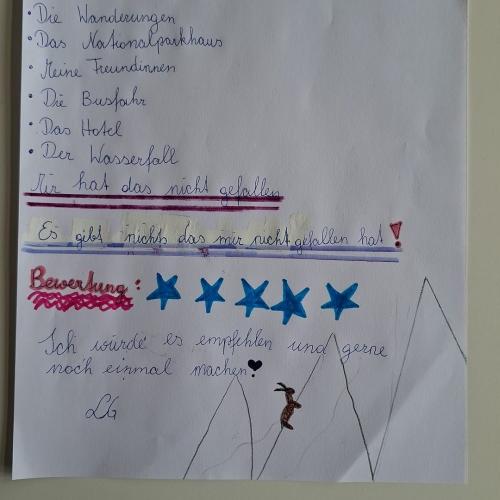 • Die Wanderungen
• Das Nationalparkhaus
• Meine Freundinnen
• Die Busfahr
• Das Hotel
• Der Wasserfall
Mir hat das nicht gefallen
Es gibt nichts das mir nicht gefallen hat!
Bewertung:
Ich würde es empfehlen und gerne
noch einmal machen
LG